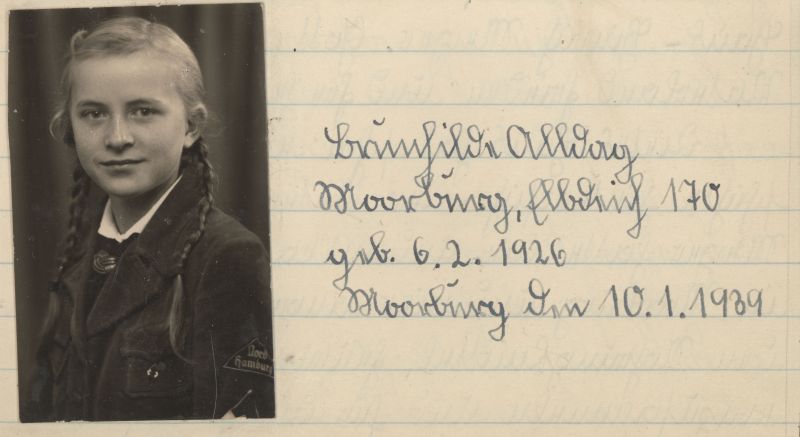 Nord
Hamburg
Brunhilde Alldag
Moorburg, Elbdeich 170
geb. 6. 2. 1926
Moorburg den 10. 1. 1939